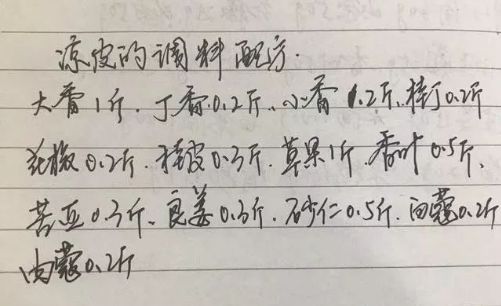 凉皮的调料配方.
大香1斤.丁香0.2斤.小香1.2斤.桂丁0.2斤
花椒0.2斤.桂皮0.3斤.草果1斤.香叶0.5斤.
0.3斤.良姜0.3斤.砂仁0.5斤.白蔻0.2斤
肉蔻0.2斤